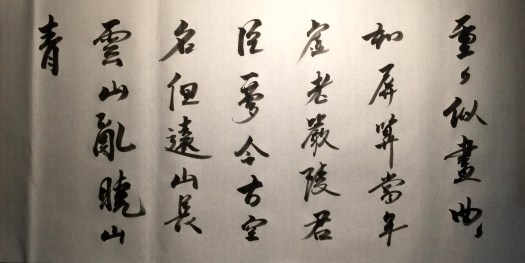 重々似畫曲々
如屏筭當年
虛老嚴陵君
臣夢今古空
名但遠山長
雲山亂曉山
青